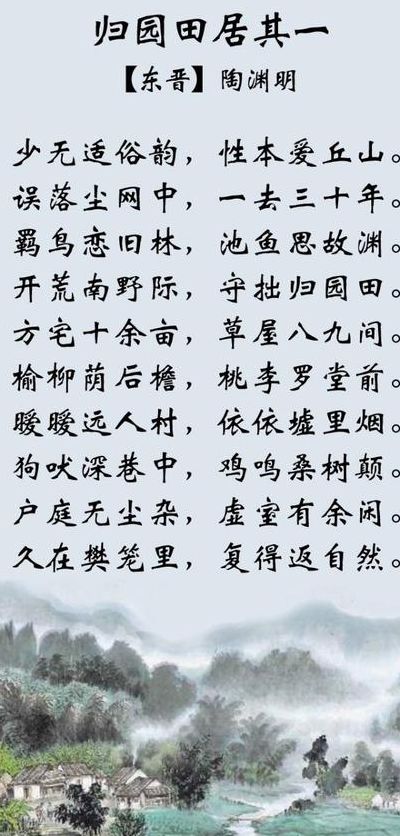 归园田居其一
【东晋】陶渊明
少无适俗韵，性本爱丘山。
误落尘网中，一去三十年。
羁鸟恋旧林，池鱼思故渊。
开荒南野际，守拙归园田。
方宅十余亩，草屋八九间。
榆柳荫后檐，桃李罗堂前。
暧暧远人村，依依墟里烟。
狗吠深巷中，鸡鸣桑树颠。
户庭无尘杂，虚室有余闲。
久在樊笼里，复得返自然。